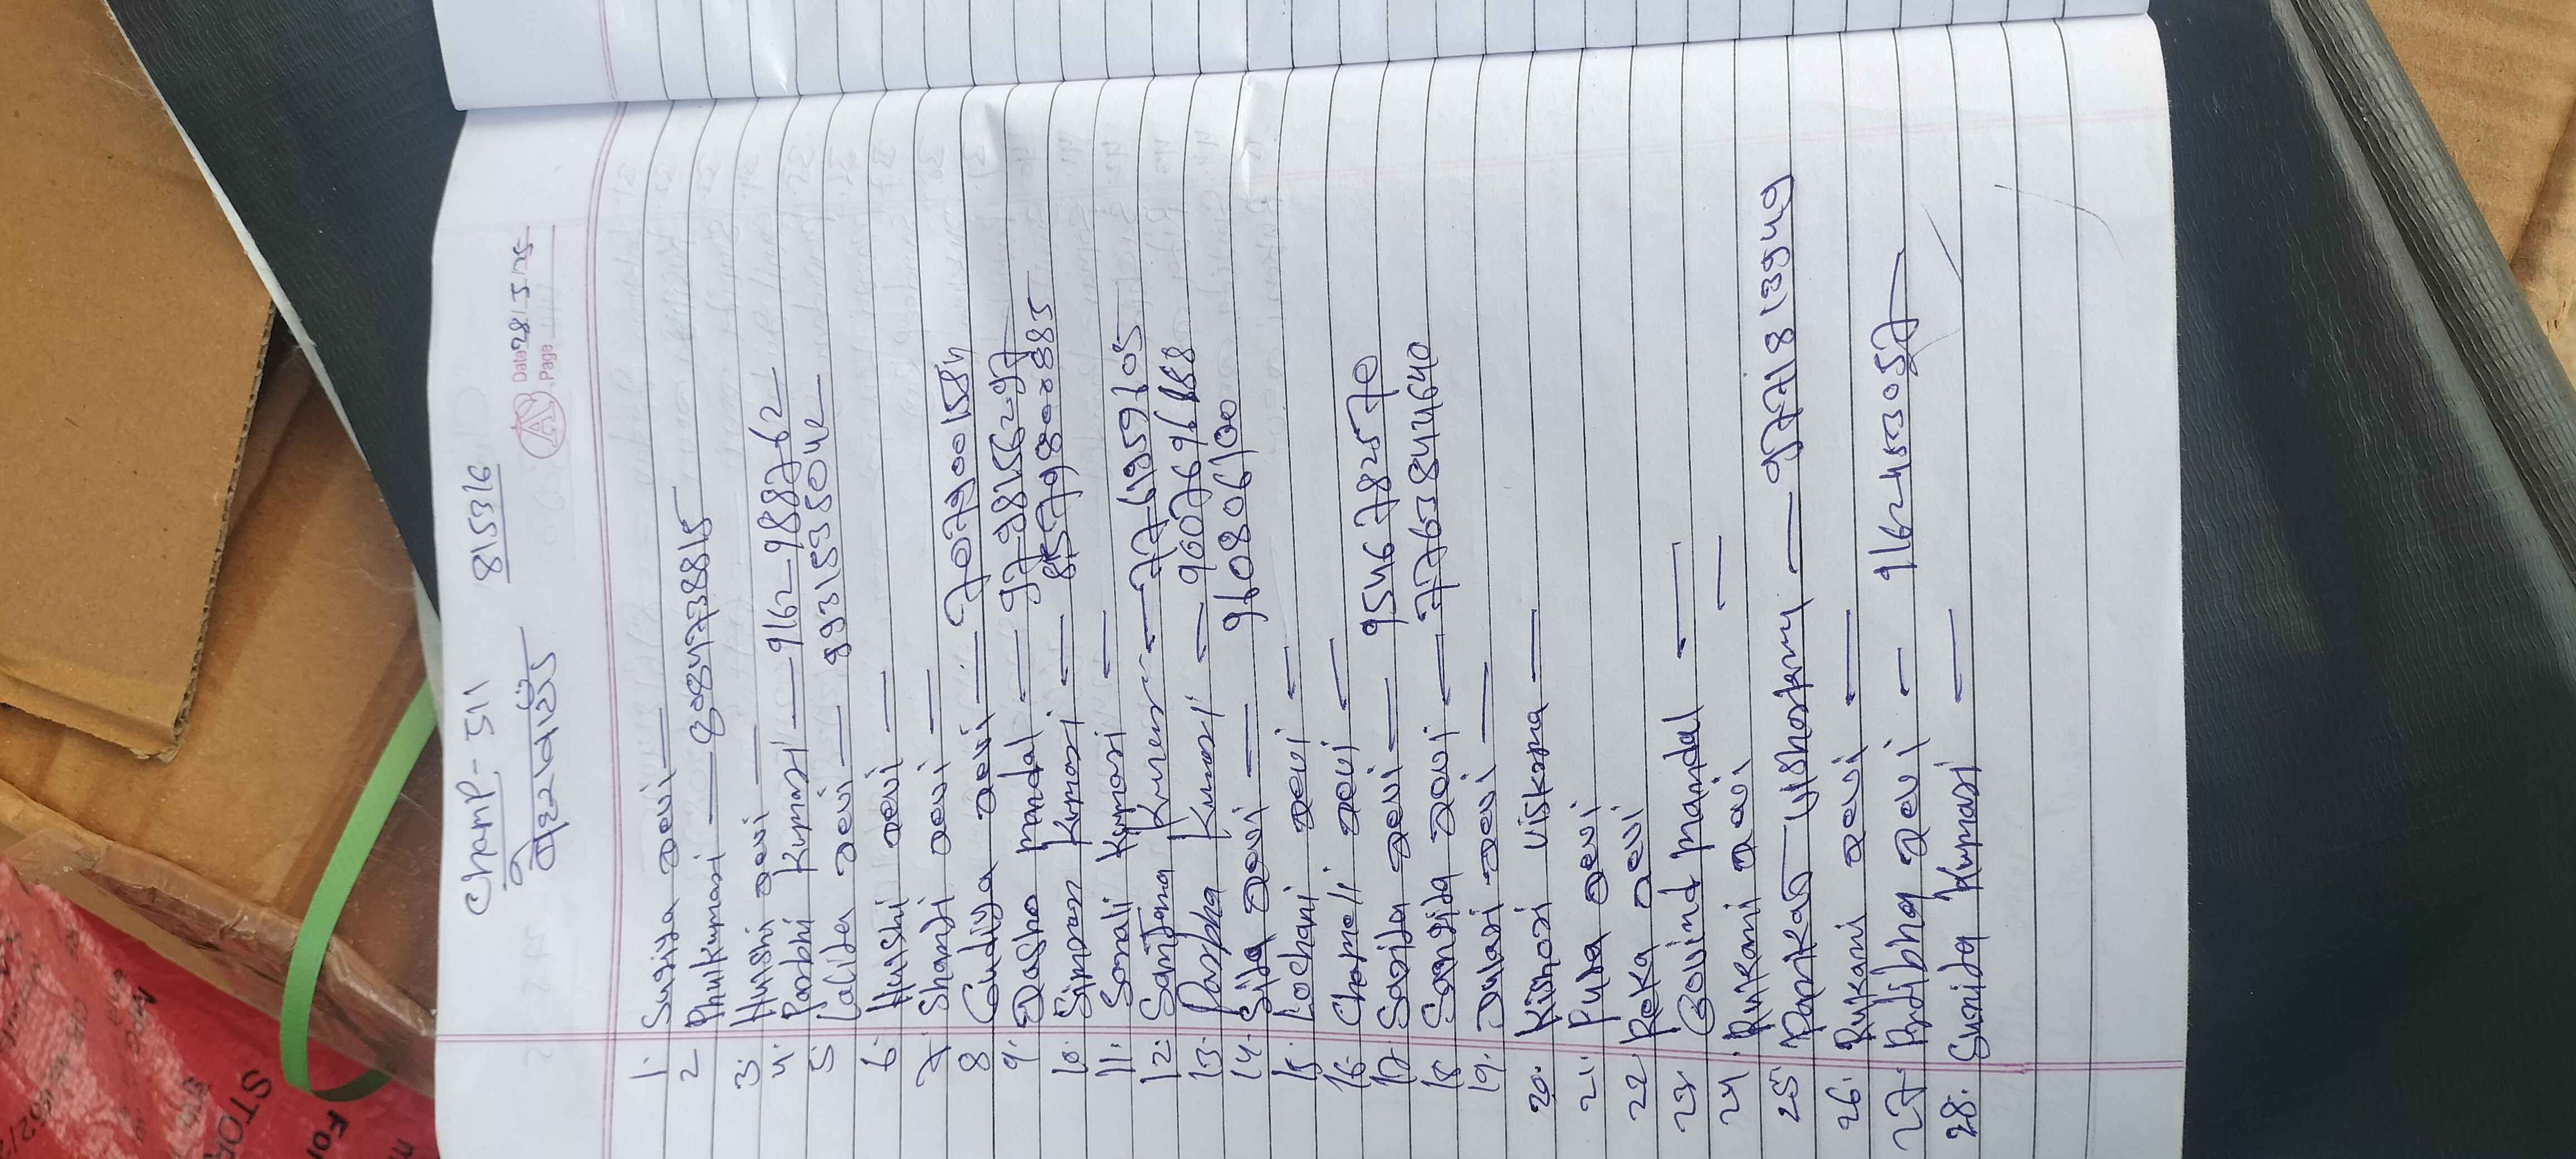 Champ - 511 815316
Date 28.5.25
Page
1. Suniya Devi —
2 Phulkumari — 8084738815
3. Hulshi Devi —
4. Parbhi Kumari — 9162988762
5. Lalita Devi — 9931593504
6. Hulshi Devi —
7. Shanti Devi —
8 Gudiya Devi — 7079001584
9. Dasho mandal — 9798156297
10. Simran Kumari — 8579800885
11. Sonali Kumari —
12. Sanjana Kumari — 7761959605
13. Puspha Kumari —
14. Sita Devi — 9608061300
15. Lochani Devi —
16. Chameli Devi —
17. Sarita Devi — 9546782570
18. Sangita Devi — 7763844640
19. Dulari Devi —
20. Kishori Viskarma —
21. Puta Devi
22 Reka Devi
23 Govind Mandal —
24. Rukani Devi —
25 Pankaj Vishwakarma — 9771813949
26. Rukani Devi —
27. Prdibha Devi — 9162453057
28. Sunita Kumari —
STOR